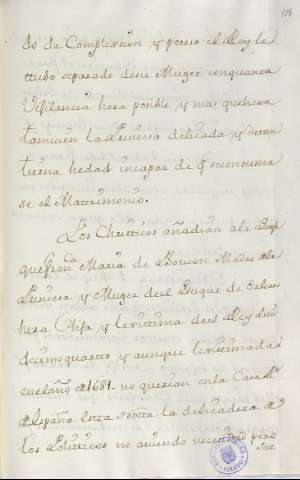 do de Complexion y por eso el Rey le
tubo separado de su Muger con quanta
Vigilancia hera posible y mas que hera
tamvien la Princesa delicada y de tan
tierna hedad incapaz de q se consuma
se el Matrimonio.
Los Criticos añadian a la
que Fran.ca Maria de Borvon Madre de la
Princesa y Muger del Duque de
hera Hija y lexitima del Rey Luis
Decimoquarto y aunque lexitimada
en el año de 1681 no querian en la Casa
de España esta nota la delicadeza de
los Politicos no aviendo necesitado pero